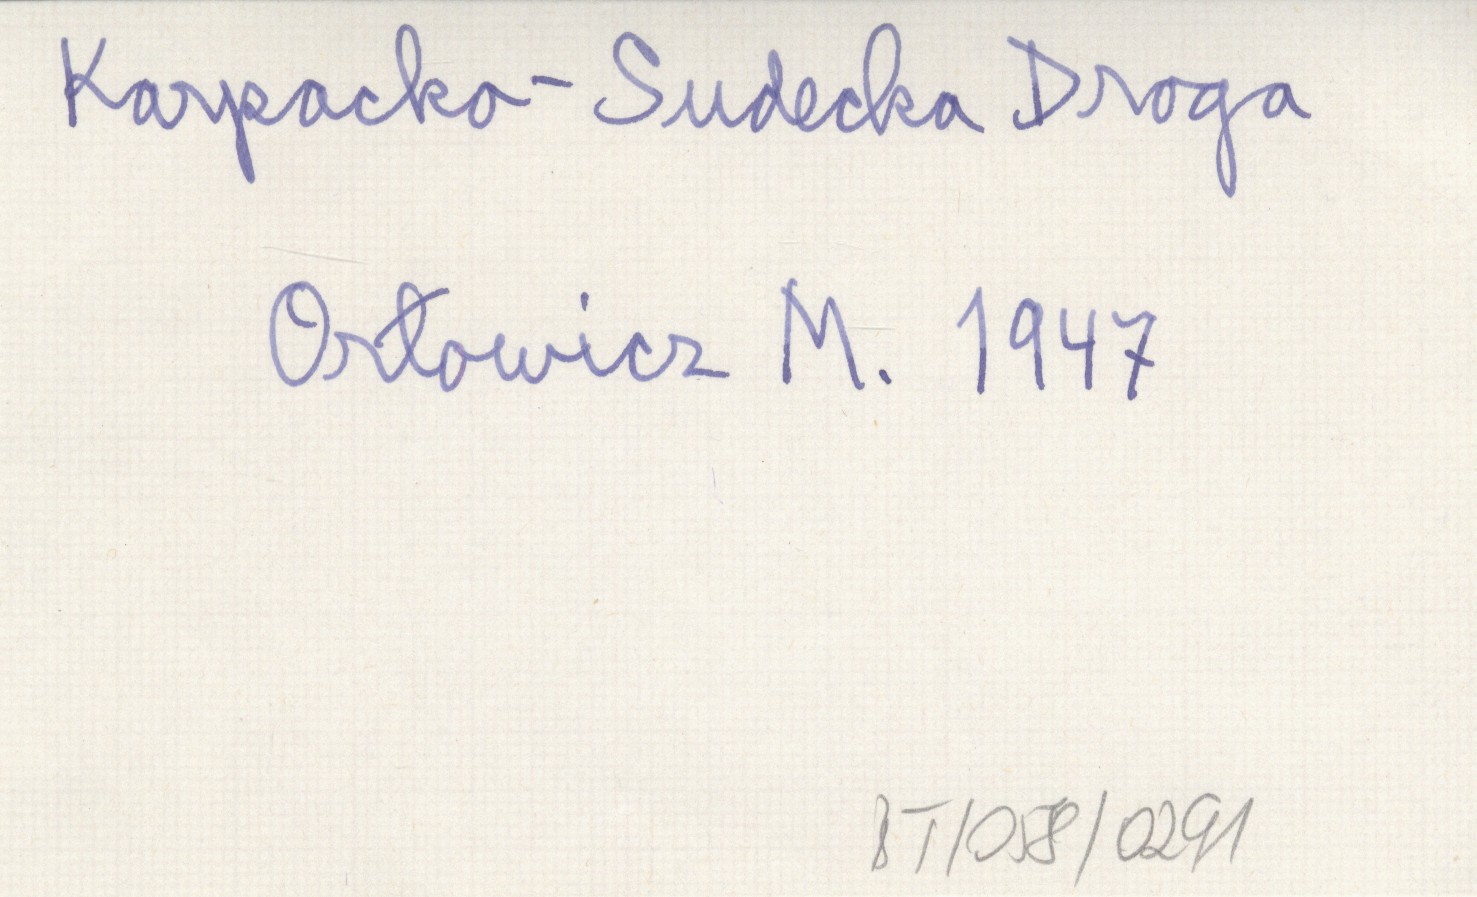 Karpacko-Sudecka Droga
Orłowicz M. 1947
BT/058/0291